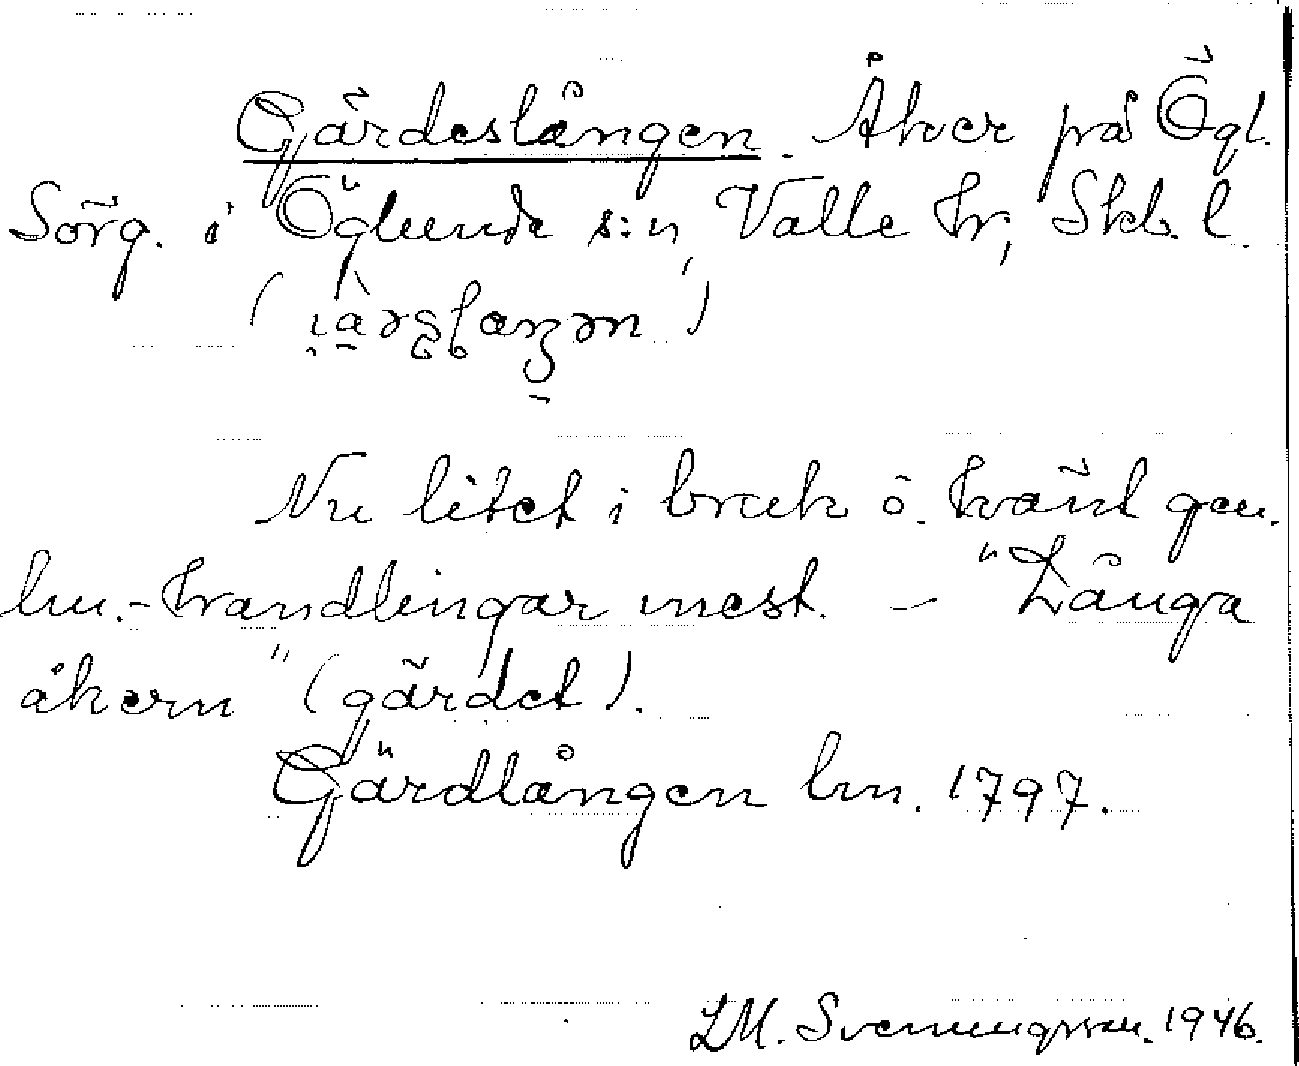 Gärdeslången. Åker på Ögl.
Sörg. i Öglunda s:n, Valle hr, Skb. l.
Nu litet i bruk o. känt gen.
lm.-handlingar mest. – "Långa
åkern" (gärdet).
Gärdlången lm. 1797.
LM. Svenungsson. 1946.